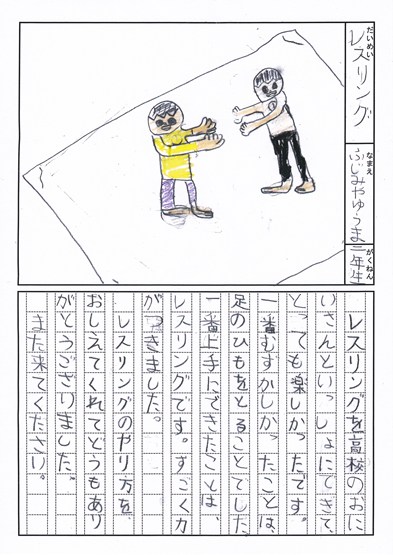 だいめい
レスリング
なまえ
ふじみやゆうま
がくねん
二年生
レスリングを高校のおに
いさんといっしょにできて、
とっても楽しかったです。
一番むずかしかったことは、
足のひもをとることでした。
一番上手にできたことは、
レスリングです。すごく力
がつきました。
レスリングのやり方を、
おしえてくれてどうもあり
がとうござりました。
また来てください。